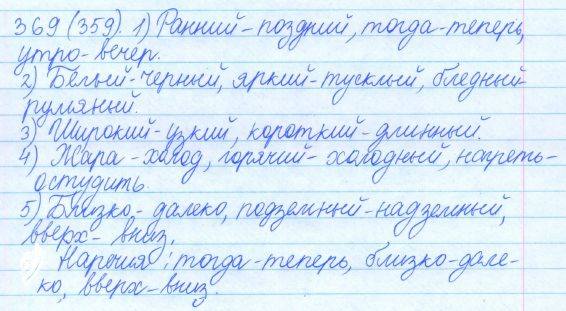 369 (359). 1) Ранний - поздний, тогда - теперь,
утро - вечер.
2) Белый - черный, яркий - тусклый, бледный -
румяный.
3) Широкий - узкий, короткий - длинный.
4) Жара - холод, горячий - холодный, нагреть -
остудить.
5) Близко - далеко, подземный - надземный,
вверх - вниз.
Наречия: тогда - теперь, близко - дале-
ко, вверх - вниз.